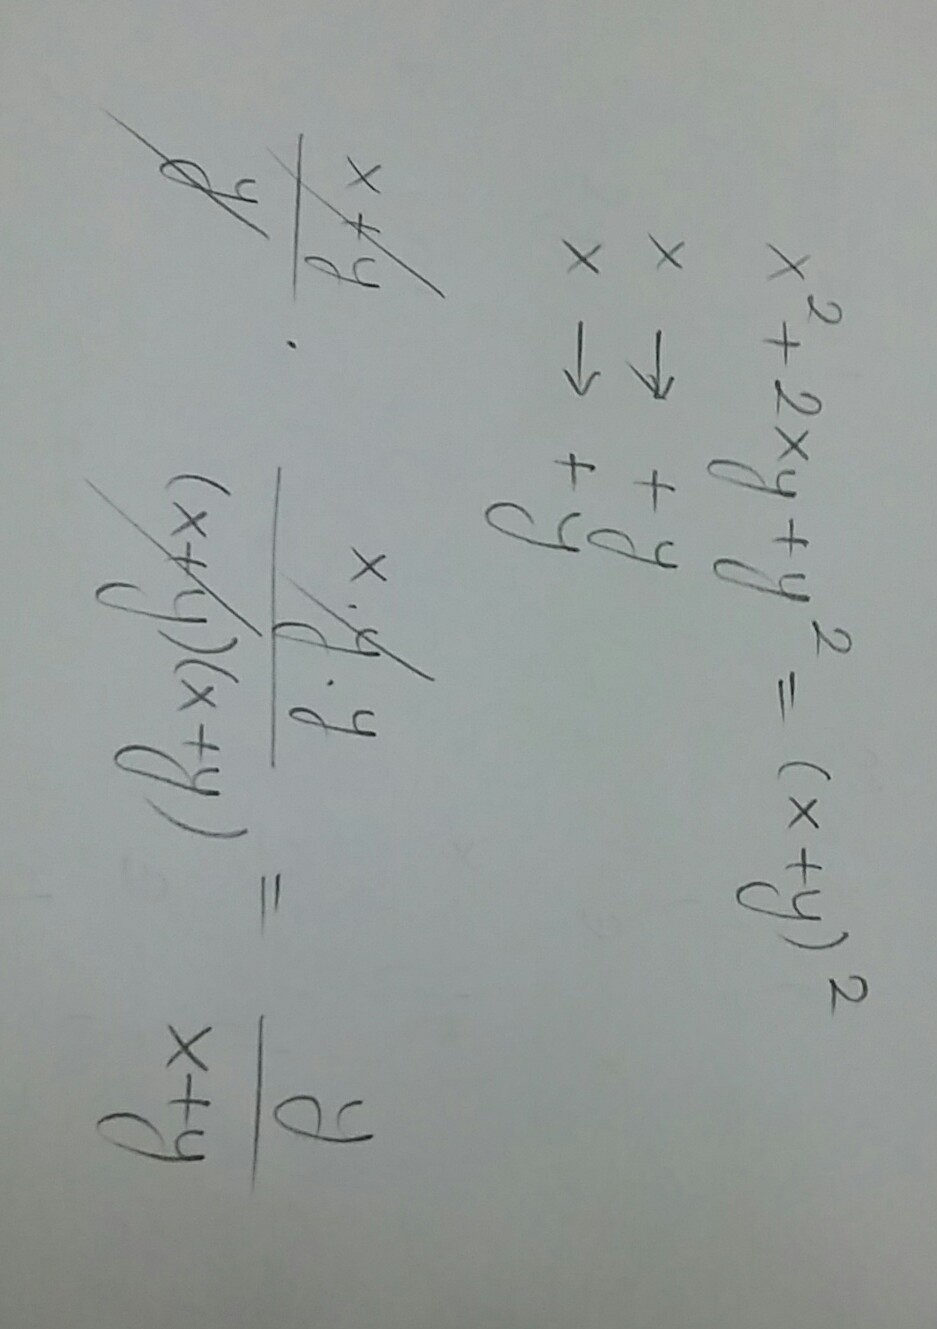 x² + 2xy + y² = (x + y)²
x → + y
x → + y
x + y / y · x · y · y / (x + y)(x + y) = y / x + y